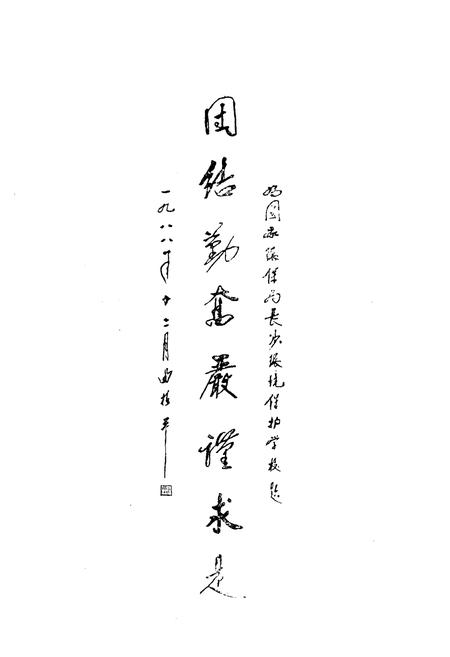 为国家环保局长沙环境保护学校题
团结勤奋嚴謹求是
一九八八年十二月曲格平